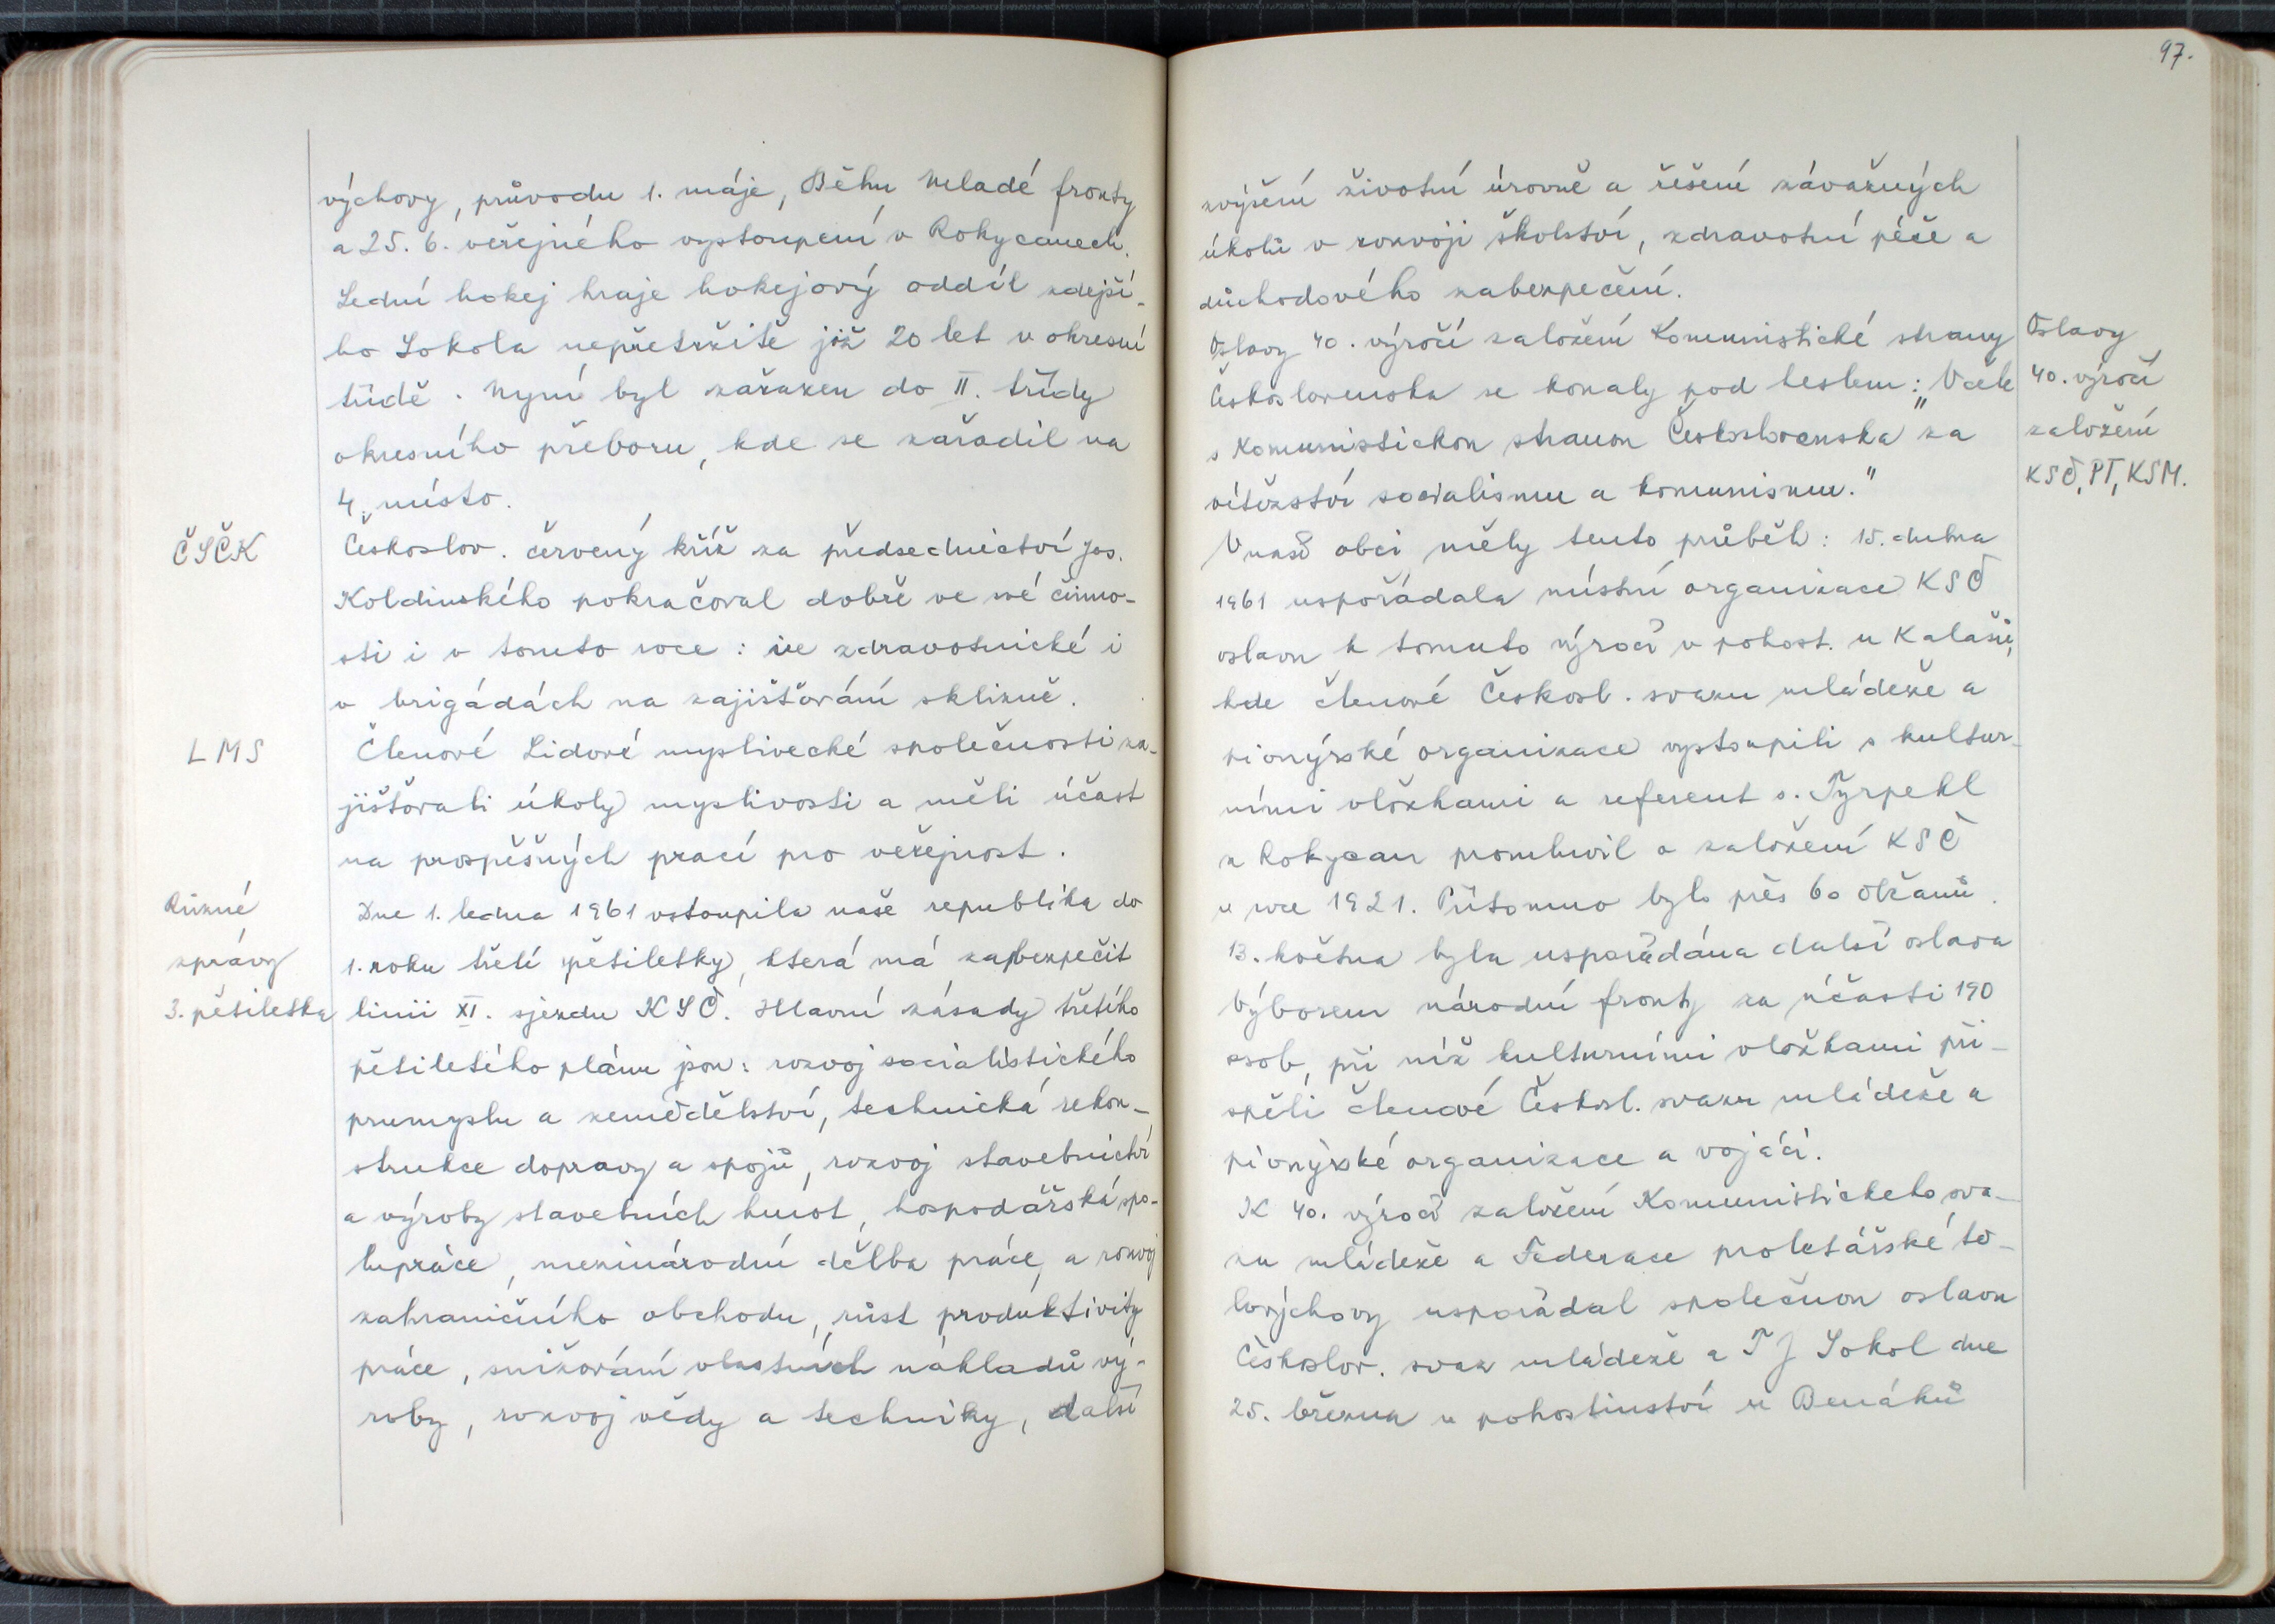 výchovy, průvodu 1. máje, Běhu Mladé fronty
a 25. 6. veřejného vystoupení v Rokycanech.
Lední hokej hraje hokejový oddíl zdejší-
ho Sokola nepřetržitě již 20 let v okresní
třídě. Nyní byl zařazen do II. třídy
okresního přeboru, kde se zařadil na
4. místo.
ČSČK
Českoslov. červený kříž za předsednictví Jos.
Koldinského pokračoval dobře ve své činno-
sti i v tomto roce: ve zdravotnické i
v brigádách na zajišťování sklizně.
LMS
Členové Lidové myslivecké společnosti za-
jišťovali úkoly myslivosti a měli účast
na prospěšných prací pro veřejnost.
Různé
zprávy
3. pětiletka
Dne 1. ledna 1961 vstoupila naše republika do
1. roku třetí pětiletky, která má zabezpečit
linii XI. sjezdu KSČ. Hlavní zásady třetího
pětiletého plánu jsou: rozvoj socialistického
prumyslu a zemědělství, technická rekon-
strukce dopravy a spojů, rozvoj stavebnictví
a výroby stavebních hmot, hospodářská spo-
lupráce, mezinárodní dělba práce, a rozvoj
zahraničního obchodu, růst produktivity
práce, snižování vlastních nákladů vý-
roby, rozvoj vědy a techniky, další
97.
zvýšení životní úrovně a řešení závažných
úkolů v rozvoji školství, zdravotní péče a
důchodového zabezpečení.
Oslavy
40. výročí
založení
KSČ, PT, KSM.
Oslavy 40. výročí založení Komunistické strany
Československa se konaly pod heslem: "Včele
s Komunistickou stranou Československa za
vítězství socialismu a komunismu."
V naší obci měly tento průběh: 15. dubna
1961 uspořádala místní organizace KSČ
oslavu k tomuto výročí v pohost. u Kalašů,
kde členové Českosl. svazu mládeže a
pionýrské organizace vystoupili s kultur-
ními vložkami a referent s. Tyrpekl
z Rokycan promluvil o založení KSČ
v roce 1921. Přítomno bylo přes 60 občanů.
13. května byla uspořádána další oslava
Výborem národní fronty za účasti 190
osob, při níž kulturními vložkami při-
spěli členové Českosl. svazu mládeže a
pionýrské organizace a vojáci.
K 40. výročí založení Komunistického sva-
zu mládeže a Federace proletářské tě-
lovýchovy uspořádal společnou oslavu
Českoslov. svaz mládeže a TJ Sokol dne
25. března v pohostinství u Benáků